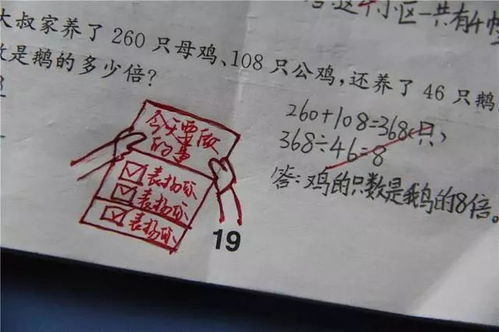 这个小区一共有4幢
大叔家养了 260 只母鸡、108 只公鸡,还养了 46 只鹅
数是鹅的多少倍?
260+108=368(只)
368÷46=8
答:鸡的只数是鹅的8倍。
今天要做
的事
表扬你
表扬你
表扬你
19